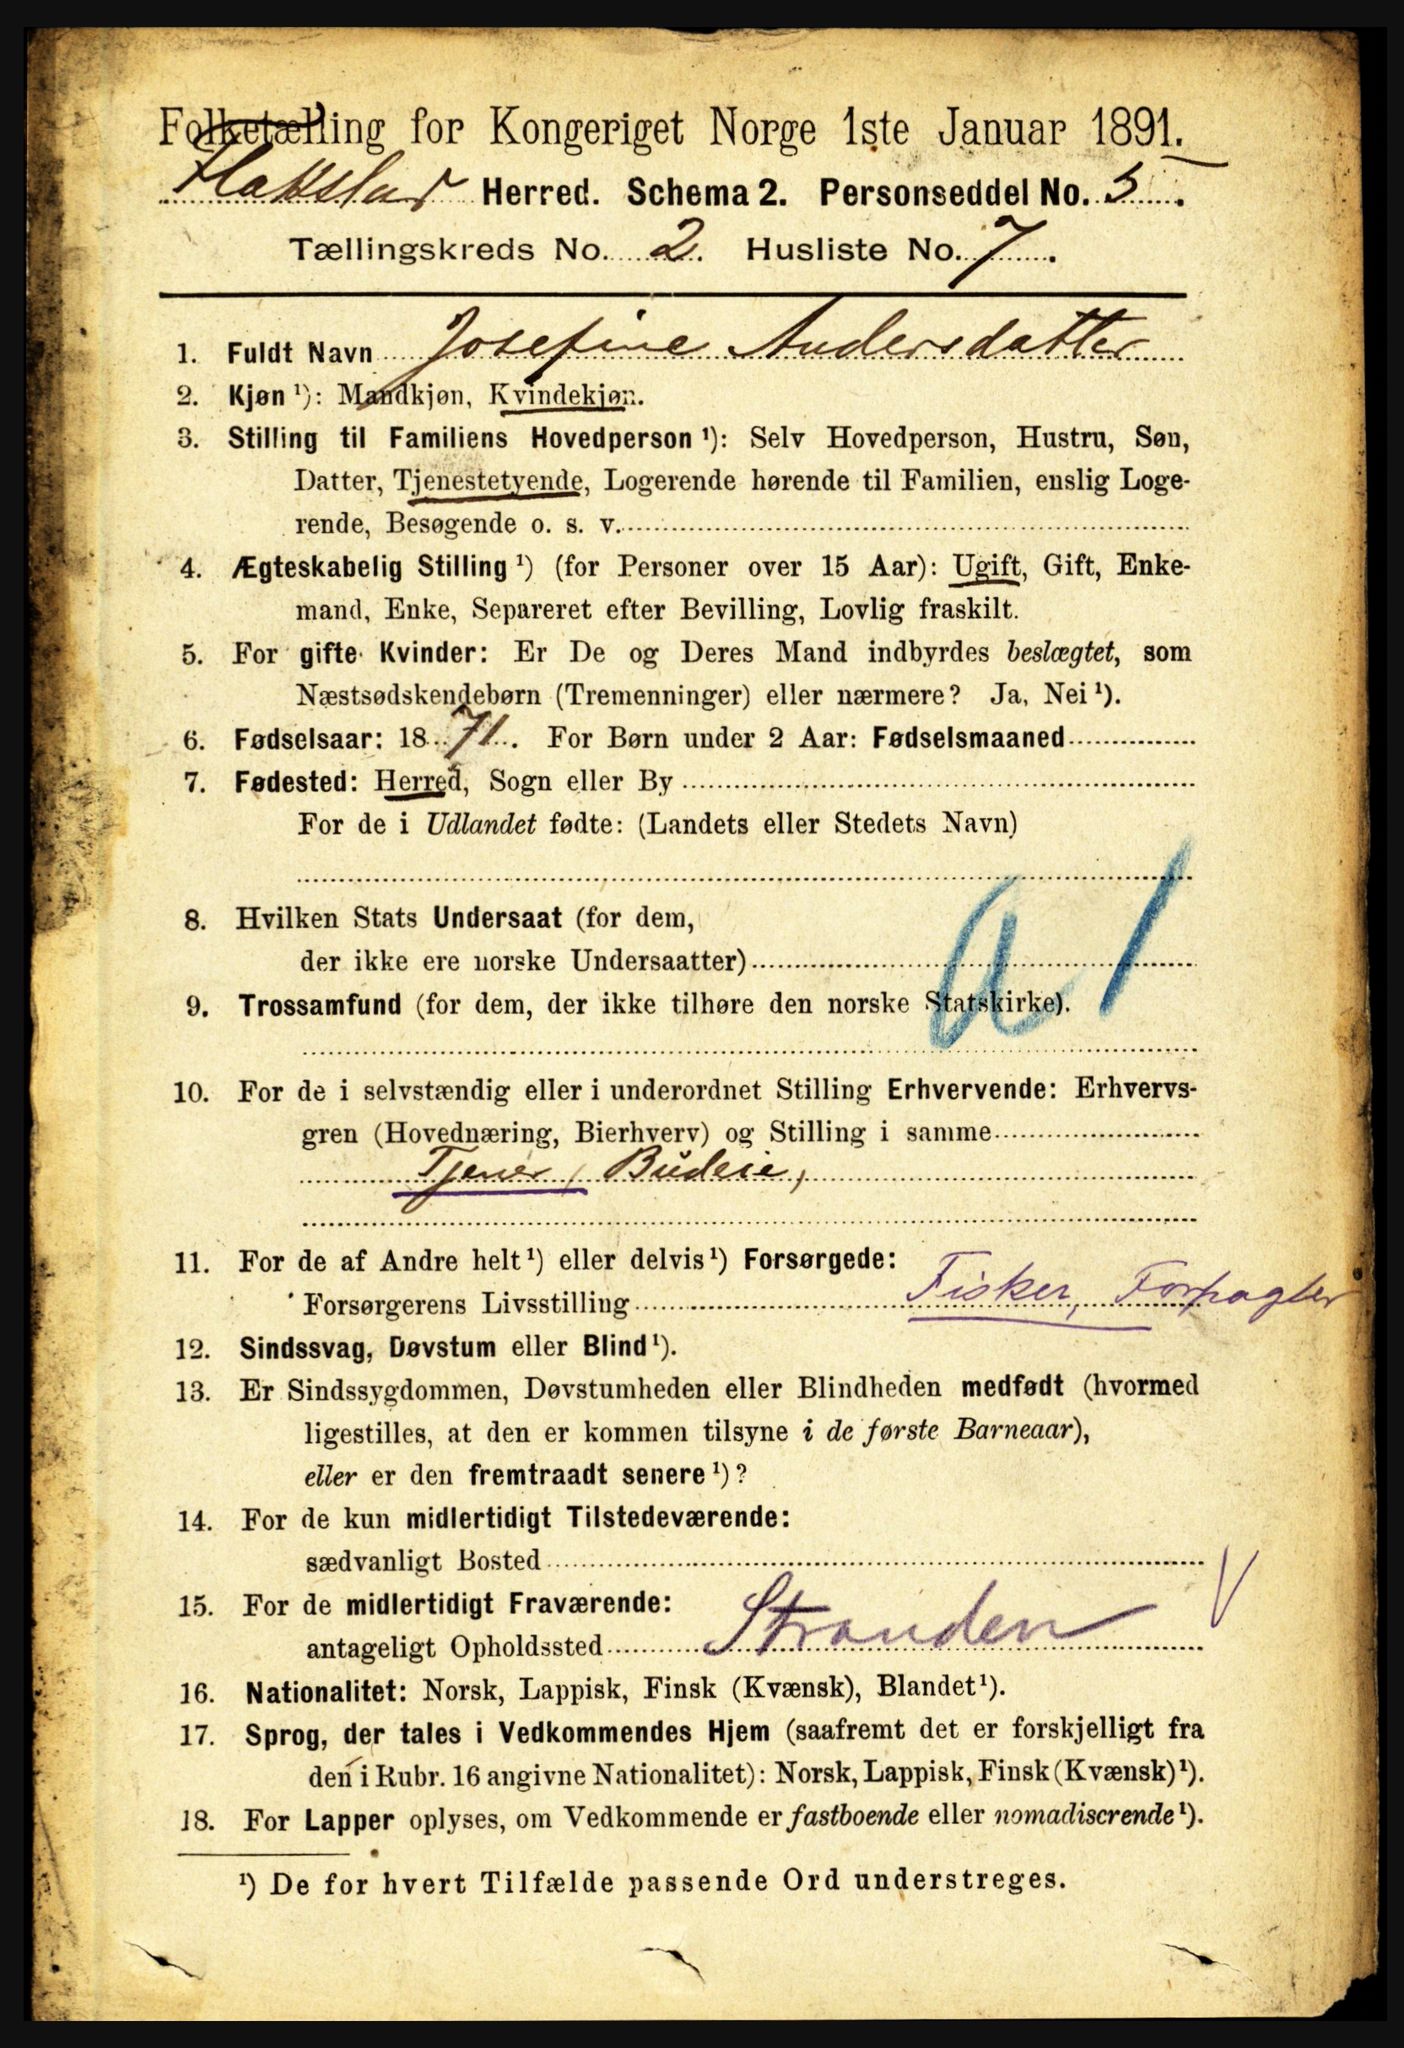 Folketælling for Kongeriget Norge 1ste Januar 1891.
Flakstad Herred. Schema 2. Personseddel No. 5.
Tællingskreds No. 2. Husliste No. 7.
1. Fuldt Navn Josefine Andersdatter
2. Kjøn ¹): Mandkjøn, Kvindekjøn.
3. Stilling til Familiens Hovedperson ¹): Selv Hovedperson, Hustru, Søn,
Datter, Tjenestetyende, Logerende hørende til Familien, enslig Loge-
rende, Besøgende o. s. v.
4. Ægteskabelig Stilling ¹) (for Personer over 15 Aar): Ugift, Gift, Enke-
mand, Enke, Separeret efter Bevilling, Lovlig fraskilt.
5. For gifte Kvinder: Er De og Deres Mand indbyrdes beslægtet, som
Næstsødskendebørn (Tremenninger) eller nærmere? Ja, Nei ¹).
6. Fødselsaar: 1871. For Børn under 2 Aar: Fødselsmaaned
7. Fødested: Herred, Sogn eller By
For de i Udlandet fødte: (Landets eller Stedets Navn)
a 1
8. Hvilken Stats Undersaat (for dem,
der ikke ere norske Undersaatter)
9. Trossamfund (for dem, der ikke tilhøre den norske Statskirke).
10. For de i selvstændig eller i underordnet Stilling Erhvervende: Erhvervs-
gren (Hovednæring, Bierhverv) og Stilling i samme
Tjener, Budeie,
11. For de af Andre helt ¹) eller delvis ¹) Forsørgede:
Forsørgerens Livsstilling Fisker, Forpagter
12. Sindssvag, Døvstum eller Blind ¹).
13. Er Sindssygdommen, Døvstumheden eller Blindheden medfødt (hvormed
ligestilles, at den er kommen tilsyne i de første Barneaar),
eller er den fremtraadt senere ¹)?
14. For de kun midlertidigt Tilstedeværende:
sædvanligt Bosted
15. For de midlertidigt Fraværende:
antageligt Opholdssted Stranden
16. Nationalitet: Norsk, Lappisk, Finsk (Kvænsk), Blandet ¹).
17. Sprog, der tales i Vedkommendes Hjem (saafremt det er forskjelligt fra
den i Rubr. 16 angivne Nationalitet): Norsk, Lappisk, Finsk (Kvænsk) ¹).
18. For Lapper oplyses, om Vedkommende er fastboende eller nomadiserende ¹).
¹) De for hvert Tilfælde passende Ord understreges.